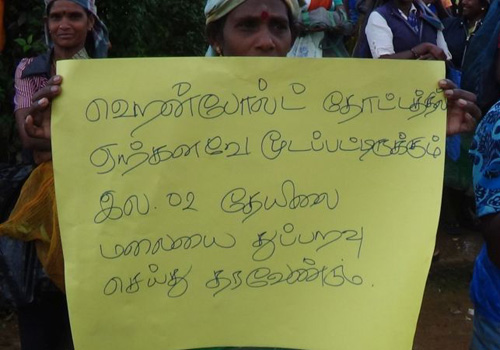 ஹென்போல்ட் தோட்டத்தில்
ஏற்கனவே மூடப்பட்டிருக்கும்
இல. 02 தேயிலை
மலையை துப்பரவு
செய்து தரவேண்டும்.